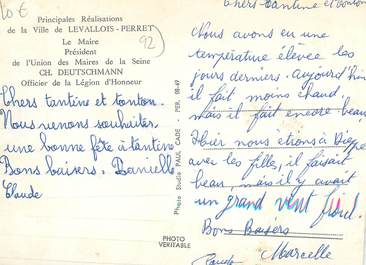 10 €
Principales Réalisations
de la Ville de LEVALLOIS-PERRET
92
Le Maire
Président
de l'Union des Maires de la Seine
CH. DEUTSCHMANN
Officier de la Légion d'Honneur
Chers tantine et tonton.
Nous venons souhaiter
une bonne fête à tantine
Bons baisers. Danielle
Claude
Photo Studio PAUL CADE - PER. 08-49
PHOTO
VERITABLE
Chers tantine et tonton
Nous avons eu une
température élevée les
jours derniers. aujourd'hui
il fait moins chaud,
mais il fait encore beau
Hier nous étions à Dieppe
avec les filles, il faisait
beau, mais il y avait
un grand vent froid.
Bons Baisers
Marcelle
Claude